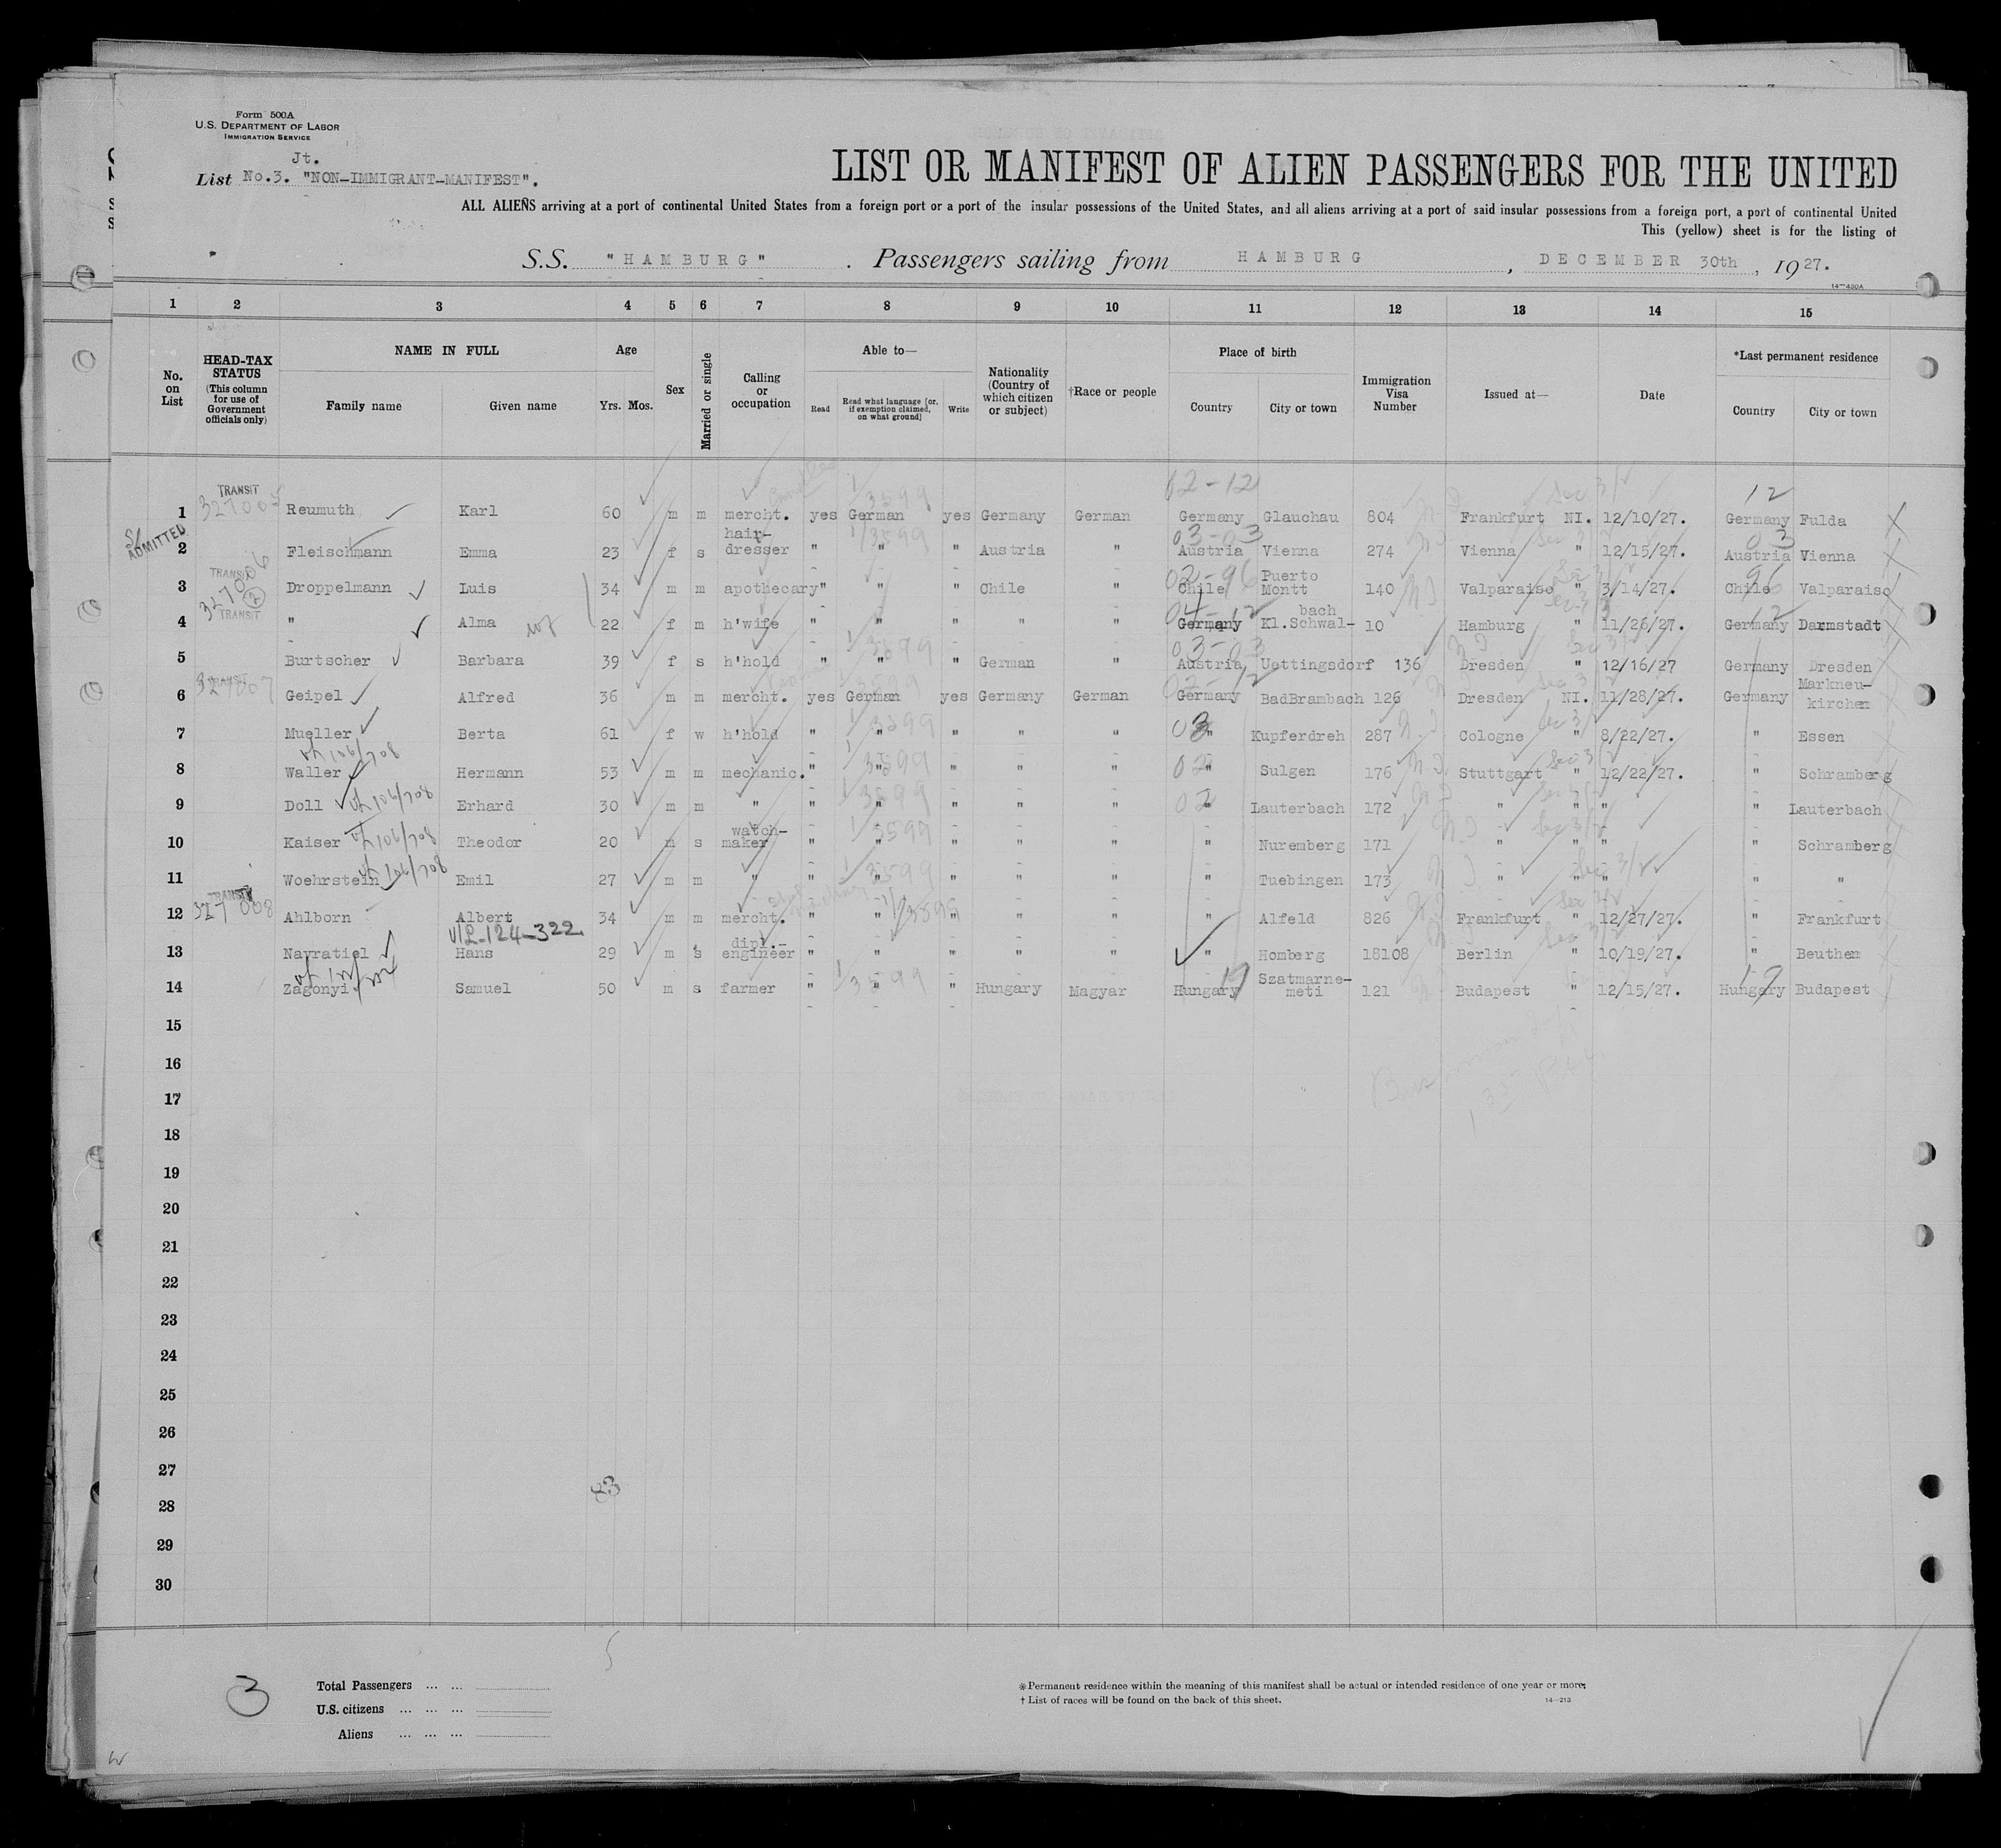 Form 500A
U.S. DEPARTMENT OF LABOR
IMMIGRATION SERVICE
Jt.
List No.3. "NON-IMMIGRANT-MANIFEST".
LIST OR MANIFEST OF ALIEN PASSENGERS FOR THE UNITED
ALL ALIENS arriving at a port of continental United States from a foreign port or a port of the insular possessions of the United States, and all aliens arriving at a port of said insular possessions from a foreign port, a port of continental United
This (yellow) sheet is for the listing of
S.S. "HAMBURG". Passengers sailing from HAMBURG, DECEMBER 30th, 1927.
14-430A
1 2 3 4 5 6 7 8 9 10 11 12 13 14 15
No. on List
HEAD-TAX STATUS (This column for use of Government officials only)
NAME IN FULL
Family name Given name
Age
Yrs. Mos.
Sex
Married or single
Calling or occupation
Able to—
Read
Read what language [or, if exemption claimed, on what ground]
Write
Nationality (Country of which citizen or subject)
†Race or people
Place of birth
Country City or town
Immigration Visa Number
Issued at—
Date
*Last permanent residence
Country City or town
TRANSIT 02-12 12
327005
1 Reumuth Karl 60 m m mercht. yes German yes Germany German Germany Glauchau 804 Frankfurt NI. 12/10/27. Germany Fulda
ADMITTED 03-03 03
2 Fleischmann Emma 23 f s hair-dresser " " " Austria " Austria Vienna 274 Vienna " 12/15/27. Austria Vienna
TRANSIT 327006 02-96 96
3 Droppelmann Luis 34 m m apothecary " " " Chile " Chile Puerto Montt 140 Valparaiso " 3/14/27. Chile Valparaiso
TRANSIT 04-12 12
4 " Alma 22 f m h'wife " " " " " Germany Kl.Schwal-bach 10 Hamburg " 11/26/27. Germany Darmstadt
03-03
5 Burtscher Barbara 39 f s h'hold " " " German " Austria Uettingsdorf 136 Dresden " 12/16/27 Germany Dresden
TRANSIT 327007 02-12
6 Geipel Alfred 36 m m mercht. yes German yes Germany German Germany BadBrambach 126 Dresden NI. 11/28/27. Germany Markneu-kirchen
7 Mueller Berta 61 f w h'hold " " " " " " Kupferdreh 287 Cologne " 8/22/27. " Essen
106/708
8 Waller Hermann 53 m m mechanic. " " " " " " Sulgen 176 Stuttgart " 12/22/27. " Schramberg
9 Doll 106/708 Erhard 30 m m " " " " " " " Lauterbach 172 " " " " Lauterbach
10 Kaiser 106/708 Theodor 20 m s watch-maker " " " " " " Nuremberg 171 " " " " Schramberg
11 Woehrstein 106/708 Emil 27 m m " " " " " " " Tuebingen 173 " " " " "
TRANSIT 327008
12 Ahlborn Albert 34 m m mercht. " " " " " " Alfeld 826 Frankfurt " 12/27/27. " Frankfurt
V/L-124-322
13 Navratiel Hans 29 m s dipl.-engineer " " " " " " Homberg 18108 Berlin " 10/19/27. " Beuthen
14 Zagonyi Samuel 50 m s farmer " " " Hungary Magyar Hungary Szatmarne-meti 121 Budapest " 12/15/27. Hungary Budapest
15
16
17
18
19
20
21
22
23
24
25
26
27
28
29
30
83
3
Total Passengers ... ...
U.S. citizens ... ... ...
Aliens ... ... ...
*Permanent residence within the meaning of this manifest shall be actual or intended residence of one year or more.
†List of races will be found on the back of this sheet.
14-213